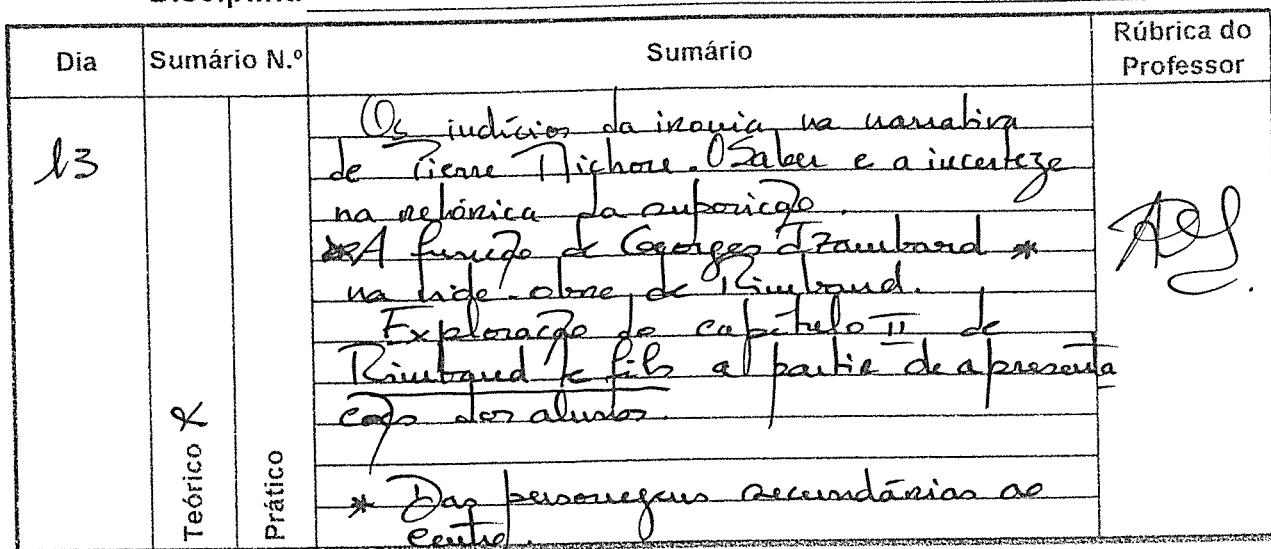 Dia
Sumário N.º
Sumário
Rúbrica do
Professor
13
Teórico X
Prático
Os indícios da ironia na narrativa
de Pierre Michon. O Saber e a incerteza
na retórica da suposição.
* A função de Georges Izambard *
na vida-obra de Rimbaud.
Exploração do capítulo II de
Rimbaud le fils a partir de apresenta
ção dos alunos.
* Das personagens secundárias ao
centro.